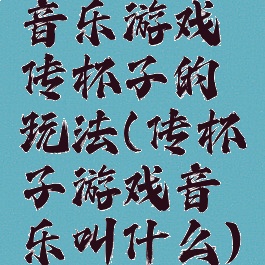 音乐游戏
传杯子的
玩法(传杯
子游戏音
乐叫什么)